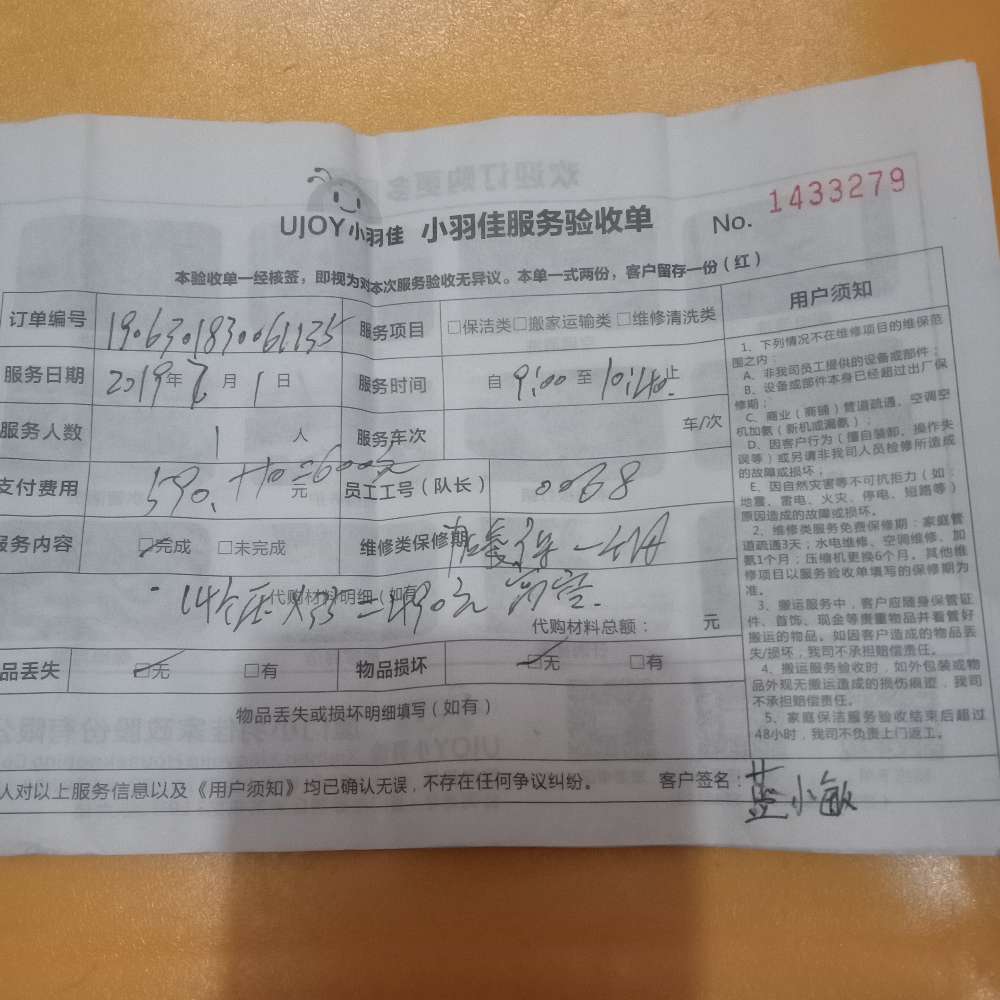 UJOY小羽佳 小羽佳服务验收单 No. 1433279
本验收单一经核签，即视为对本次服务验收无异议。本单一式两份，客户留存一份（红）
订单编号 1906301830061135 服务项目 □保洁类□搬家运输类□维修清洗类
服务日期 2019年7月1日 服务时间 自9:00至10:40止
服务人数 1人 服务车次 车/次
支付费用 590.+10=600元 元 员工工号（队长） 0068
服务内容 □完成 □未完成 维修类保修期
代购材料明细（如有
14个 490元
代购材料总额： 元
品丢失 □无 □有 物品损坏 □无 □有
物品丢失或损坏明细填写（如有）
人对以上服务信息以及《用户须知》均已确认无误，不存在任何争议纠纷。 客户签名：蓝小敏
用户须知
1、下列情况不在维修项目的维保范
围之内：
A、非我司员工提供的设备或部件；
B、设备或部件本身已经超过出厂保
修期；
C、商业（商铺）管道疏通、空调空
机加氨（新机或漏氨）；
D、因客户行为（擅自装卸、操作失
误等）或另请非我司人员检修所造成
的故障或损坏；
E、因自然灾害等不可抗拒力（如：
地震、雷电、火灾、停电、短路等）
原因造成的故障或损坏。
2、维修类服务免费保修期：家庭管
道疏通3天；水电维修、空调维修、加
氨1个月；压缩机更换6个月。其他维
修项目以服务验收单填写的保修期为
准。
3、搬运服务中，客户应随身保管证
件、首饰、现金等贵重物品并看管好
搬运的物品。如因客户造成的物品丢
失/损坏，我司不承担赔偿责任。
4、搬运服务验收时，如外包装或物
品外观无搬运造成的损伤痕迹，我司
不承担赔偿责任。
5、家庭保洁服务验收结束后超过
48小时，我司不负责上门返工。